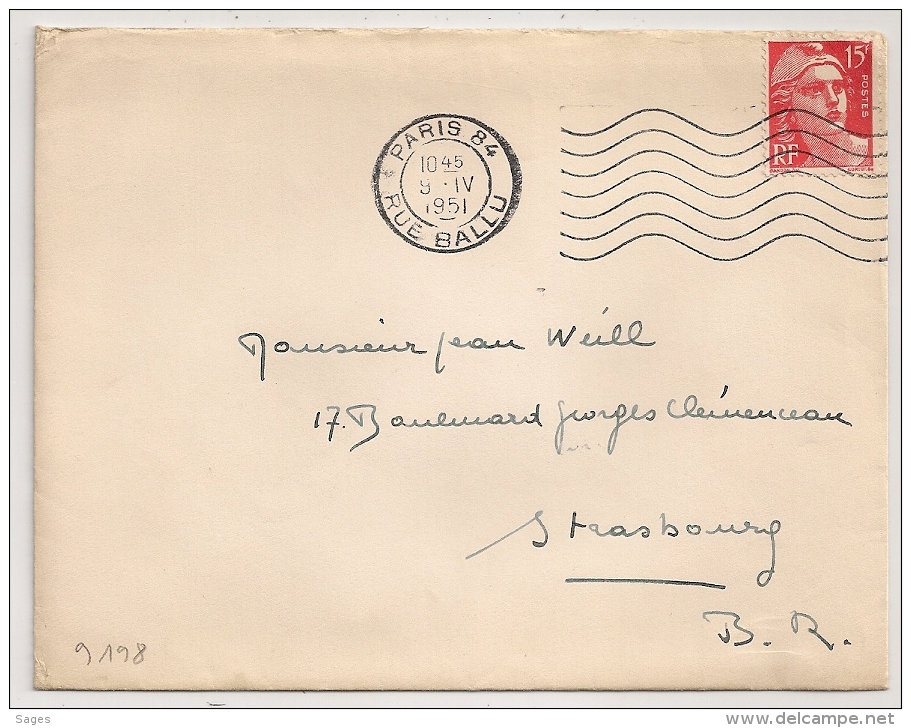 15F
POSTES
RF
PARIS 84
10 45
9 · IV
1951
RUE BALLU
Monsieur Jean Weill
17. Boulevard Georges Clémenceau
Strasbourg
B. R.
9198
Sages
www.delcampe.net